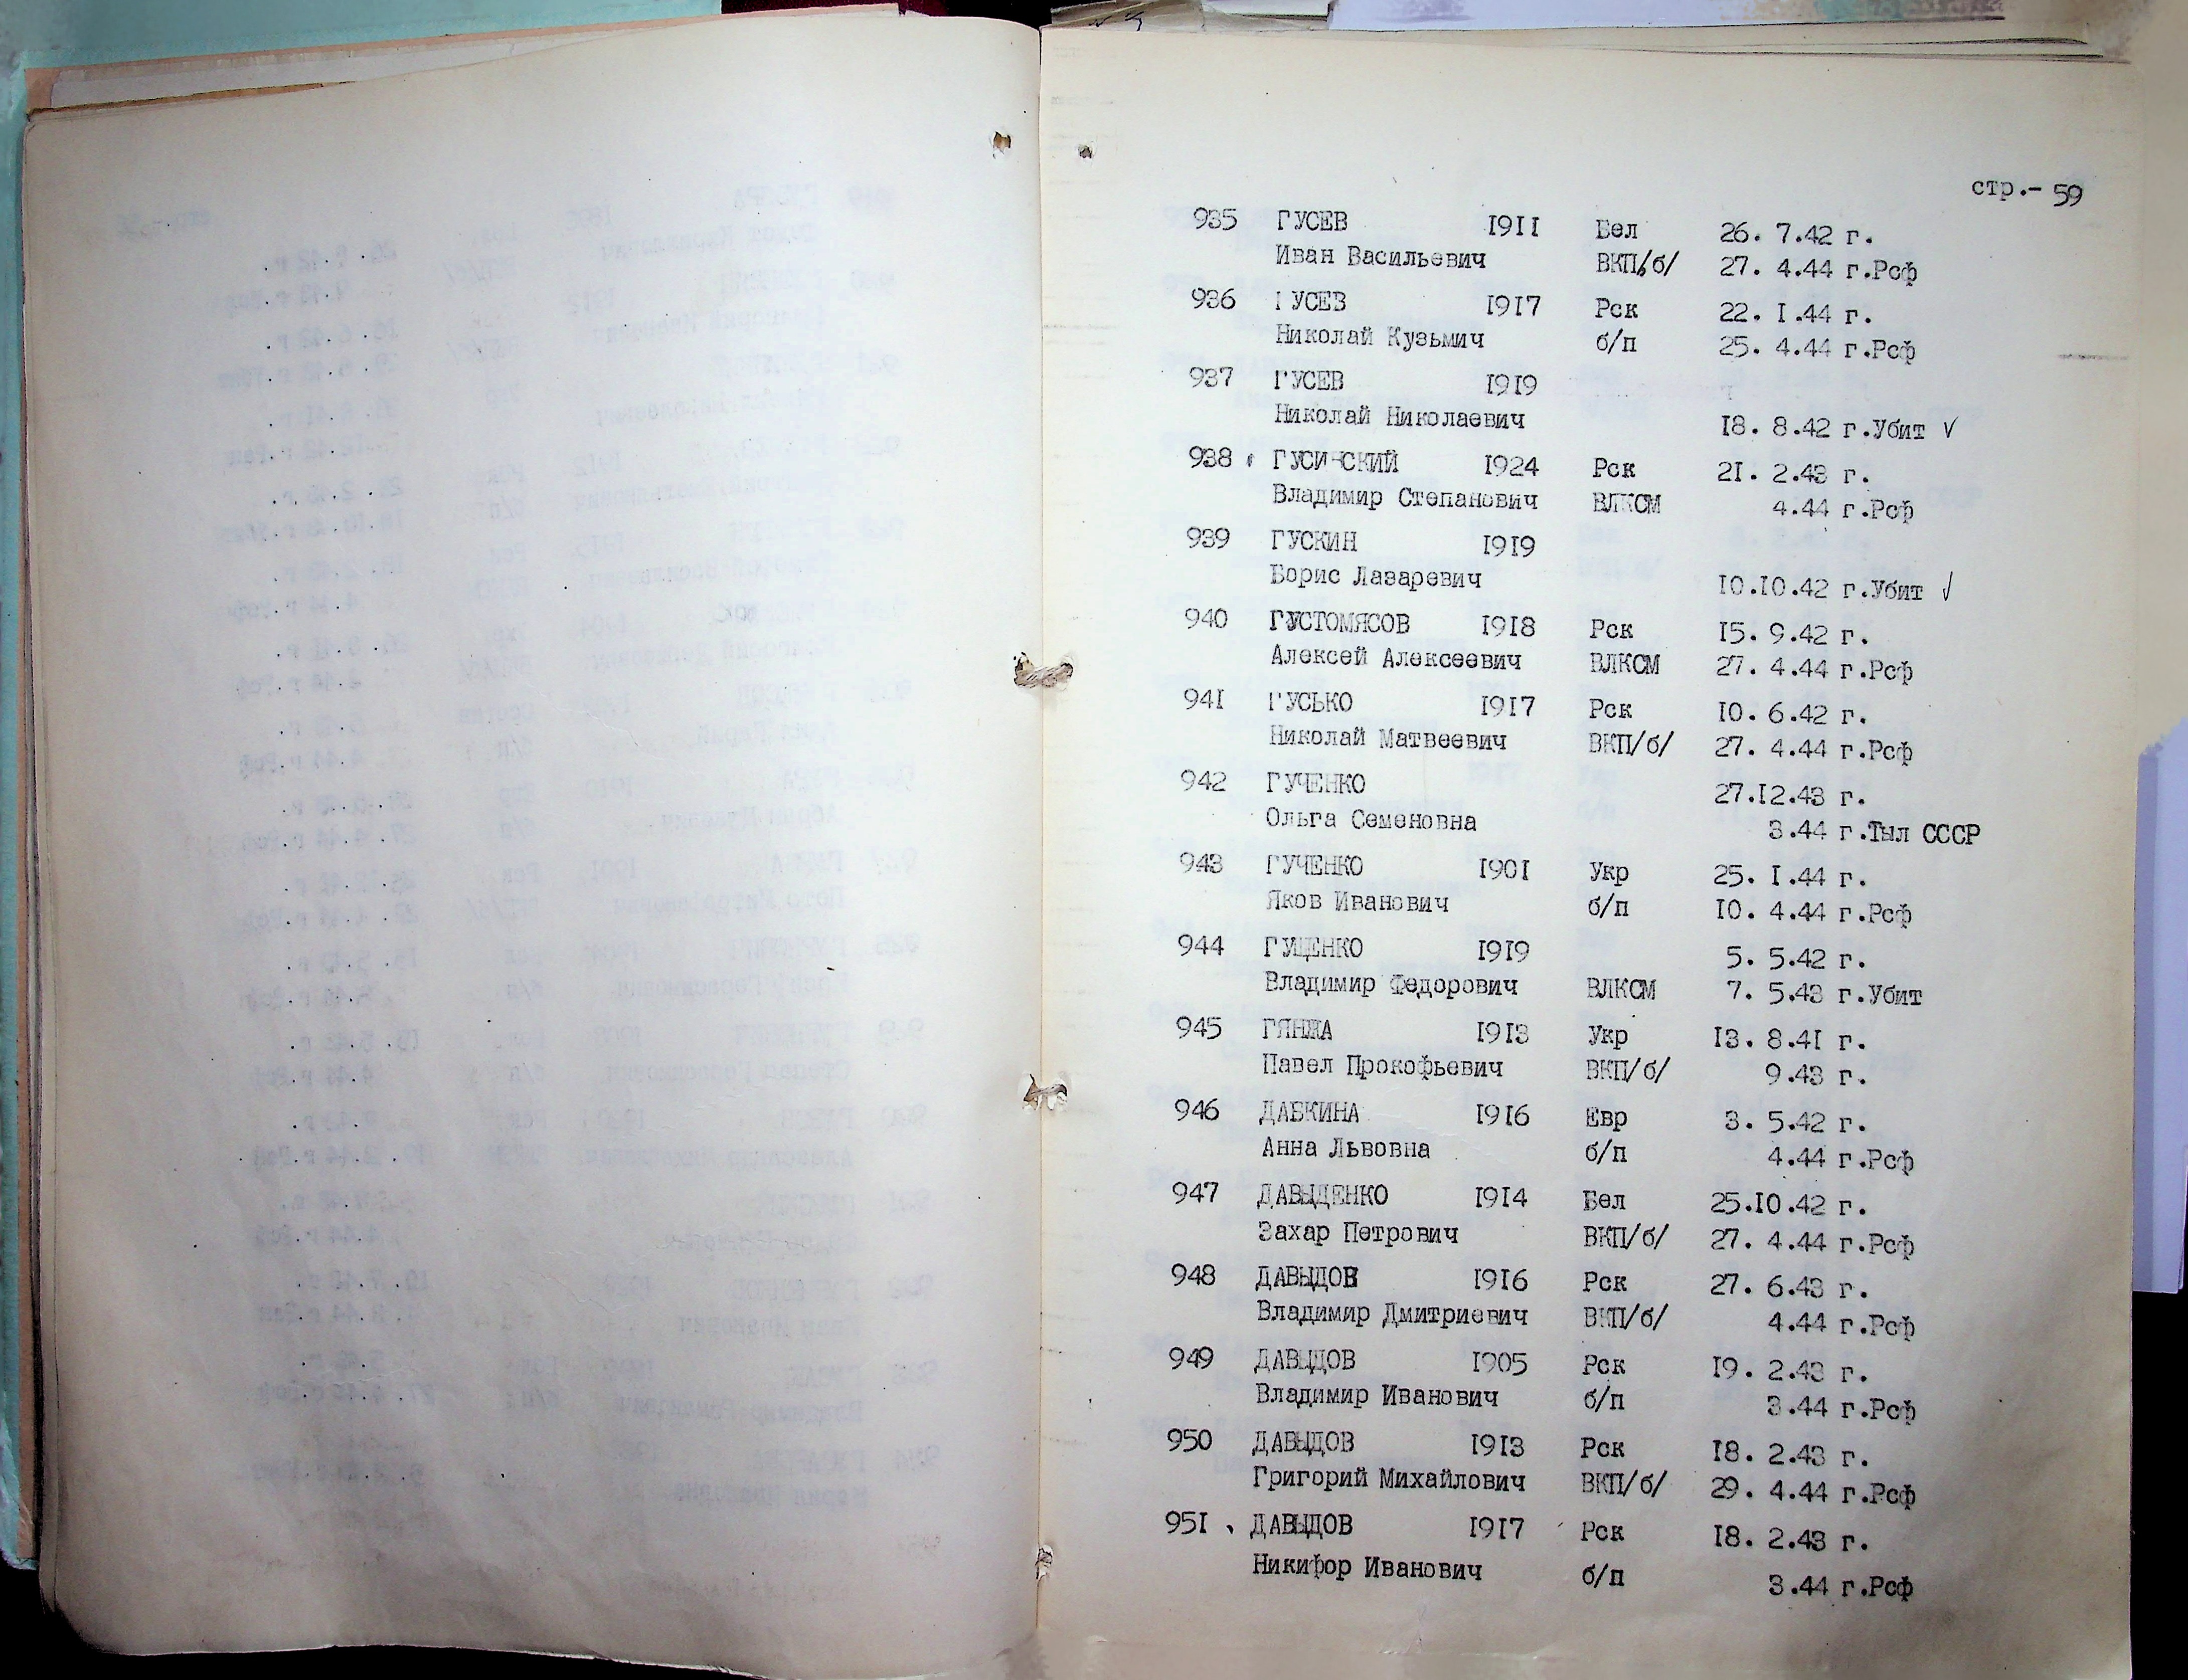 стр.- 59
935 ГУСЕВ 1911 Бел 26. 7.42 г.
Иван Васильевич ВКП/б/ 27. 4.44 г.Рсф
936 ГУСЕВ 1917 Рск 22. 1.44 г.
Николай Кузьмич б/п 25. 4.44 г.Рсф
937 ГУСЕВ 1919
Николай Николаевич 18. 8.42 г.Убит √
938 ГУСИНСКИЙ 1924 Рск 21. 2.43 г.
Владимир Степанович ВЛКСМ 4.44 г.Рсф
939 ГУСКИН 1919
Борис Лазаревич 10.10.42 г.Убит √
940 ГУСТОМЯСОВ 1918 Рск 15. 9.42 г.
Алексей Алексеевич ВЛКСМ 27. 4.44 г.Рсф
941 ГУСЬКО 1917 Рск 10. 6.42 г.
Николай Матвеевич ВКП/б/ 27. 4.44 г.Рсф
942 ГУЧЕНКО 27.12.43 г.
Ольга Семеновна 3.44 г.Тыл СССР
943 ГУЧЕНКО 1901 Укр 25. 1.44 г.
Яков Иванович б/п 10. 4.44 г.Рсф
944 ГУЩЕНКО 1919 5. 5.42 г.
Владимир Федорович ВЛКСМ 7. 5.43 г.Убит
945 ГЯНЖА 1913 Укр 13. 8.41 г.
Павел Прокофьевич ВКП/б/ 9.43 г.
946 ДАБКИНА 1916 Евр 3. 5.42 г.
Анна Львовна б/п 4.44 г.Рсф
947 ДАВЫДЕНКО 1914 Бел 25.10.42 г.
Захар Петрович ВКП/б/ 27. 4.44 г.Рсф
948 ДАВЫДОВ 1916 Рск 27. 6.43 г.
Владимир Дмитриевич ВКП/б/ 4.44 г.Рсф
949 ДАВЫДОВ 1905 Рск 19. 2.43 г.
Владимир Иванович б/п 3.44 г.Рсф
950 ДАВЫДОВ 1913 Рск 18. 2.43 г.
Григорий Михайлович ВКП/б/ 29. 4.44 г.Рсф
951 ДАВЫДОВ 1917 Рск 18. 2.43 г.
Никифор Иванович б/п 3.44 г.Рсф